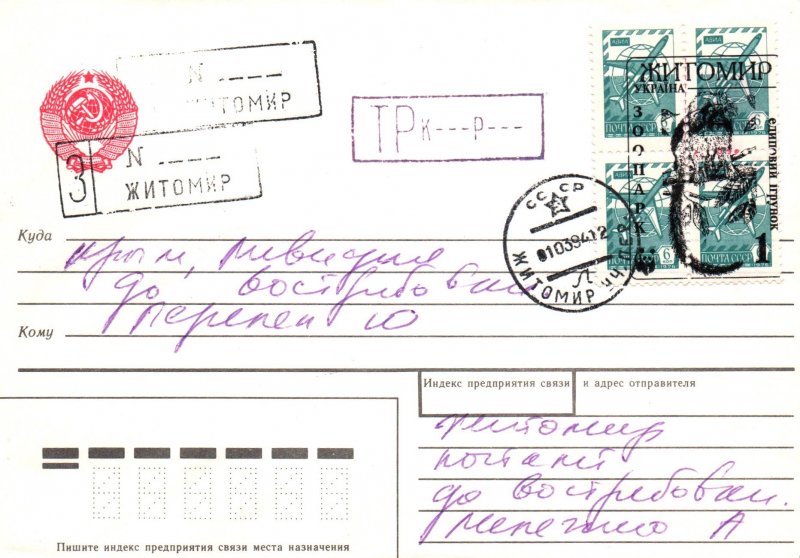 N ----
ЖИТОМИР
З N ----
ЖИТОМИР
ТР к---р---
АВИА АВИА
ЖИТОМИР
УКРАЇНА
ЗООПАРК
6 ПОЧТА СССР
ПОЧТА СССР 6
1
СССР
010394 12
Л
ЖИТОМИР
Куда Крым,
до востребован
Кому
Индекс предприятия связи и адрес отправителя
Житомир
почтамт
до востребован.
А
Пишите индекс предприятия связи места назначения